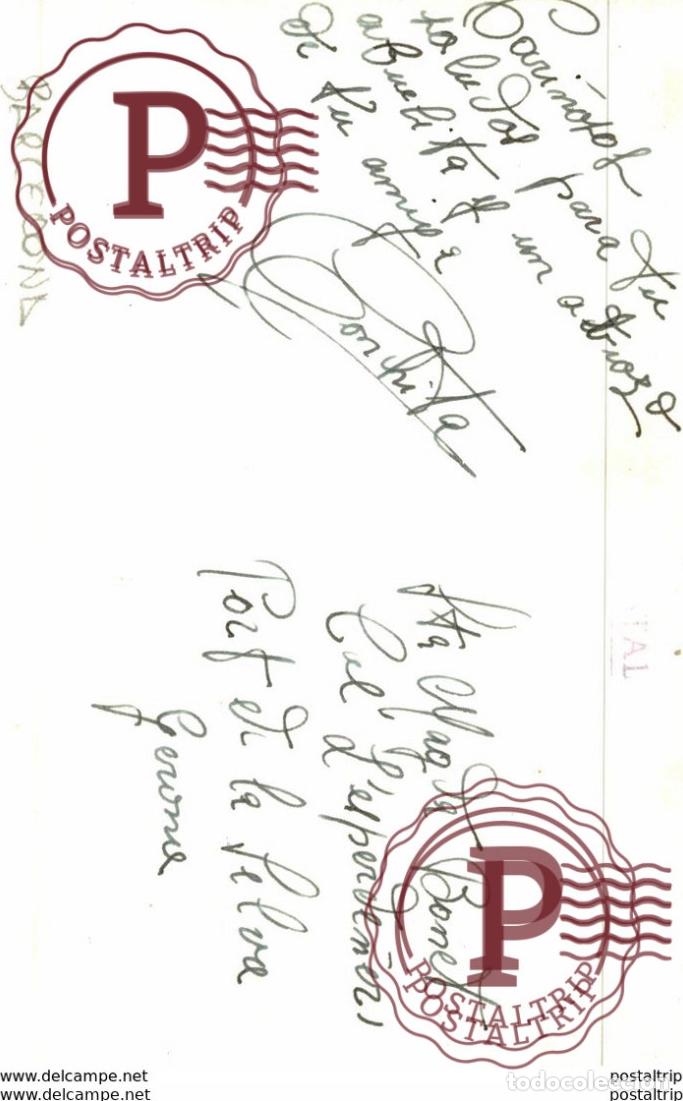 Cariñosos
saludos para tu
abuelita y un abrazo
de tu amiga
Conchita
BARCELONA
Sta Magda Bonet
Cal L'espardenyer
Port de la Selva
Gerona
TAL
P
POSTALTRIP
P
POSTALTRIP
POSTALTRIP
www.delcampe.net
www.delcampe.net
postaltrip
todocoleccion
postaltrip